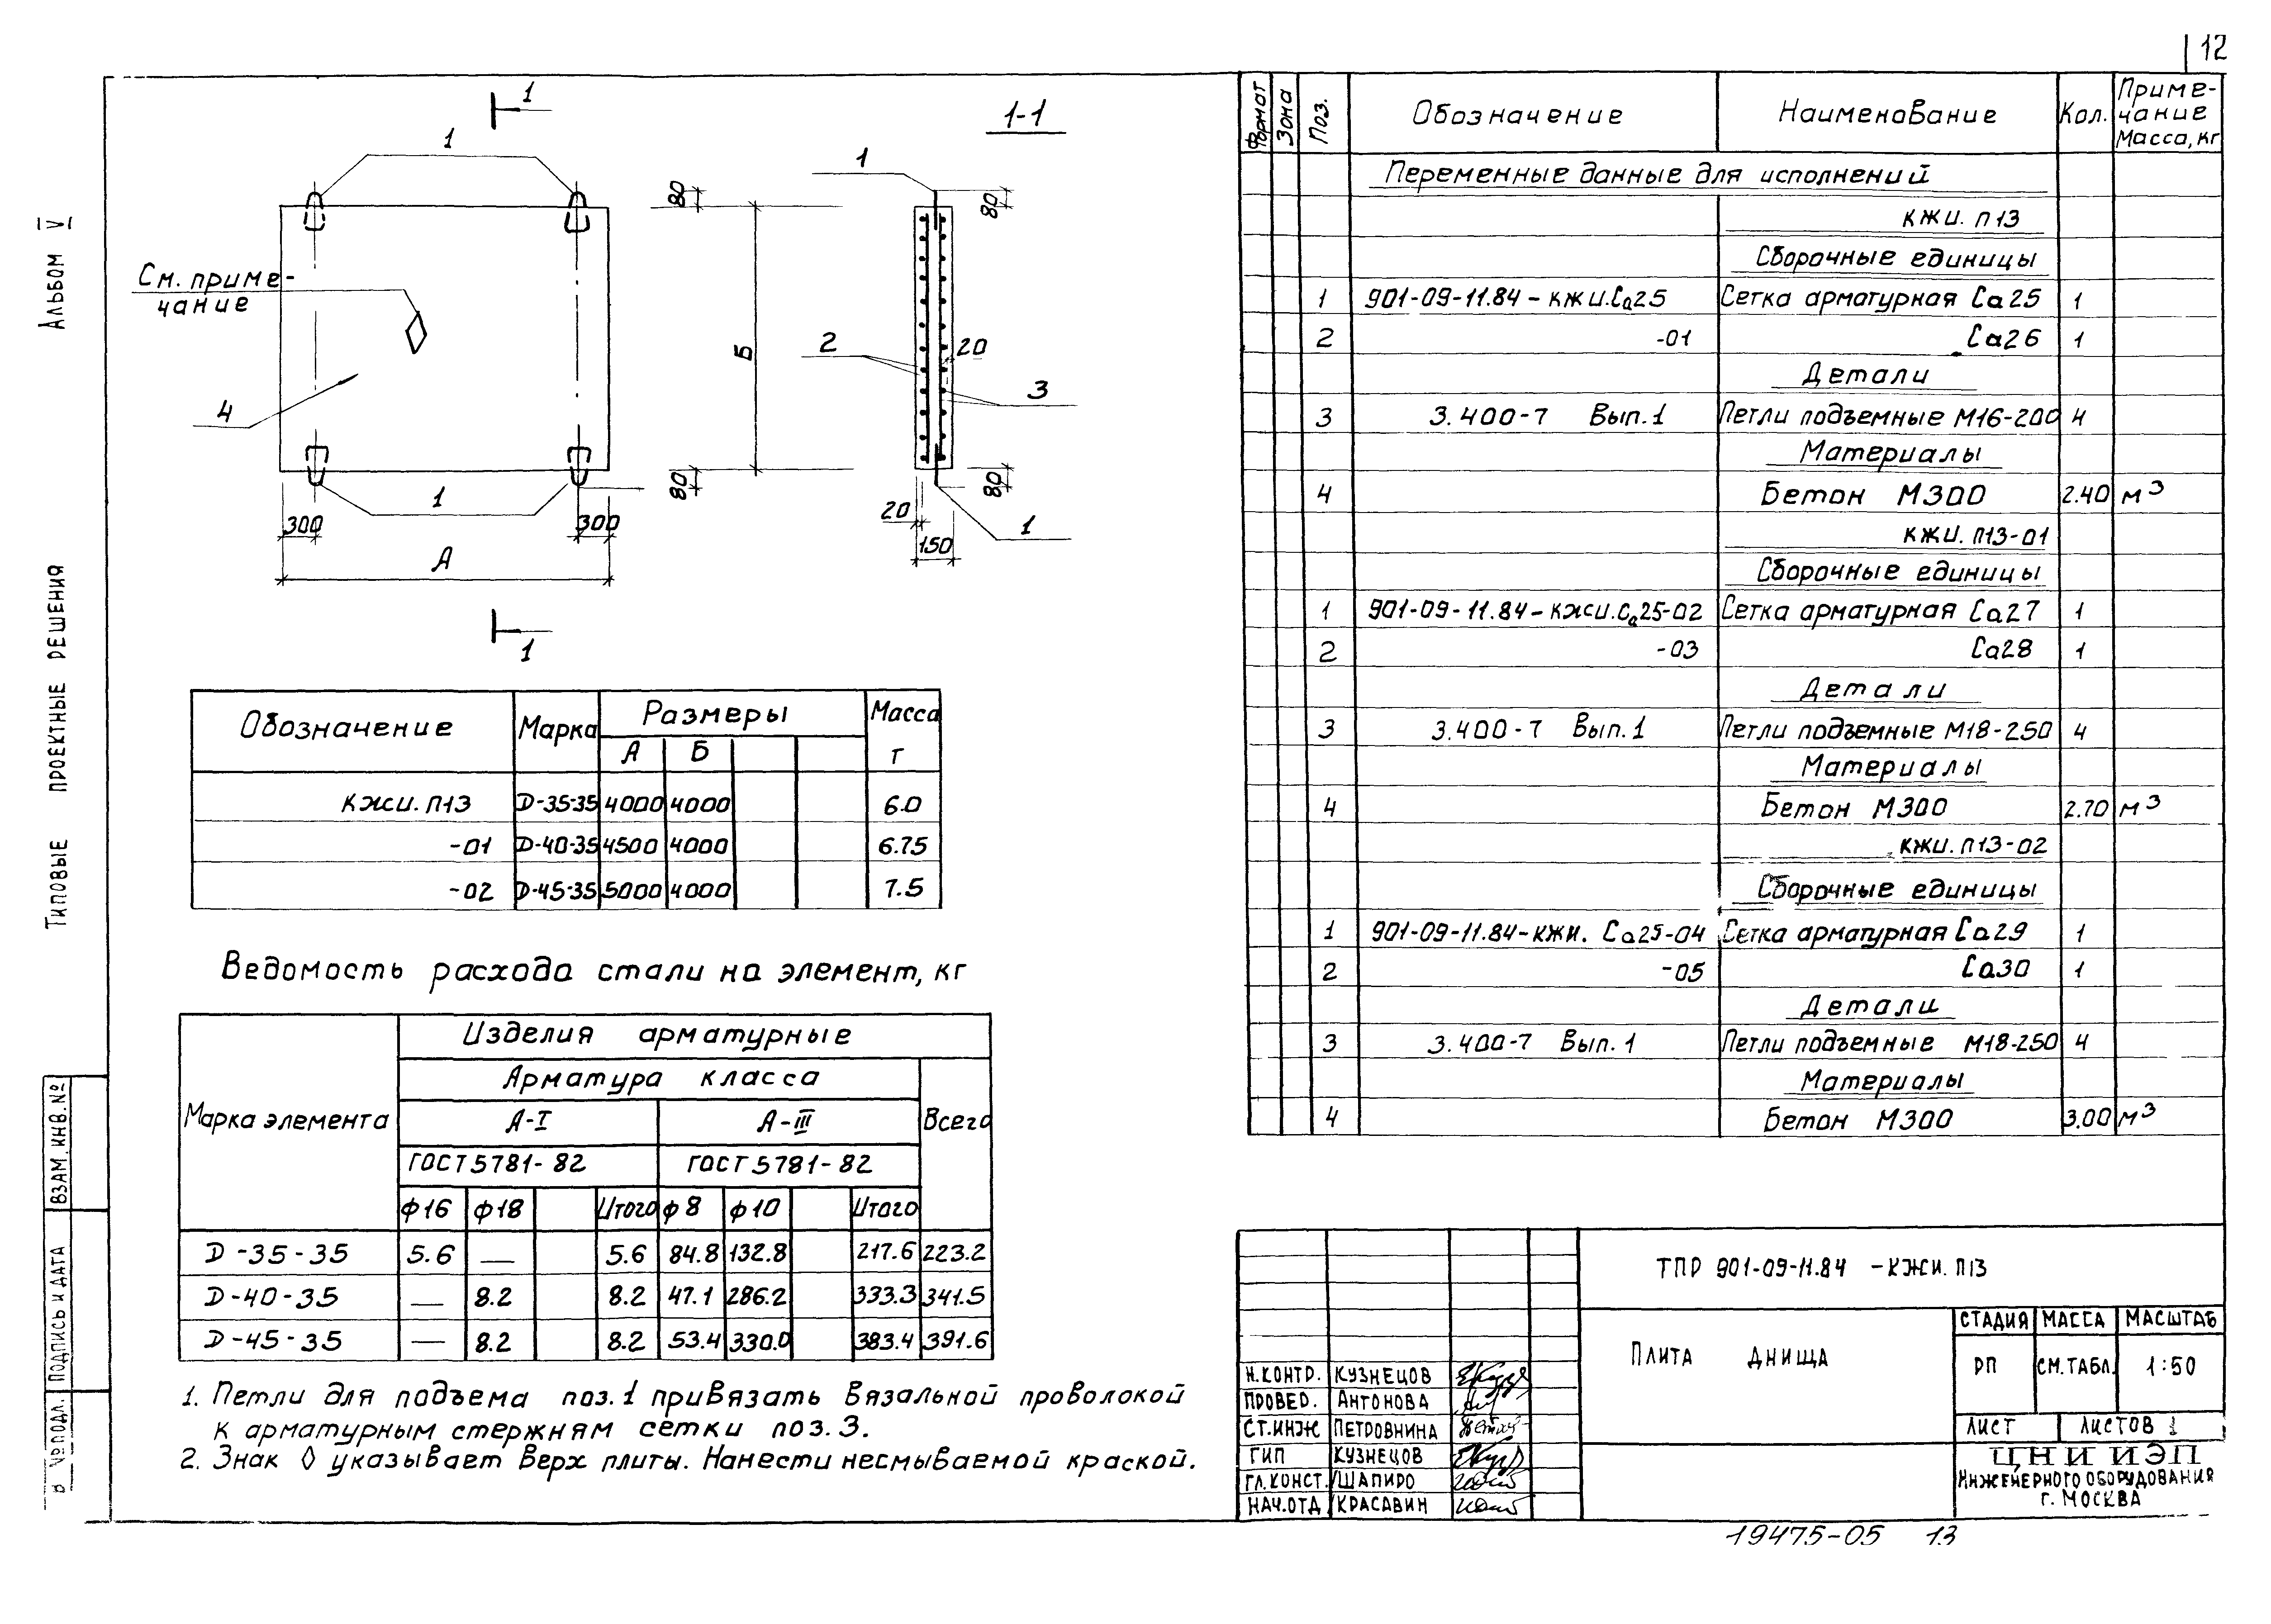 12
Альбом V
Типовые проектные решения
Взам. инв. №
Подпись и дата
№ подл.
1
1
1-1
1
80
80
См. приме-
чание
Б
2
20
3
4
1
80
80
300
300
20
1
150
А
1
Обозначение Марка Размеры Масса
А Б т
КЖИ.П13 D-35-35 4000 4000 6.0
-01 D-40-35 4500 4000 6.75
-02 D-45-35 5000 4000 7.5
Ведомость расхода стали на элемент, кг
Марка элемента Изделия арматурные
Арматура класса Всего
А-I А-III
ГОСТ 5781-82 ГОСТ 5781-82
ф16 ф18 Итого ф8 ф10 Итого
D-35-35 5.6 — 5.6 84.8 132.8 217.6 223.2
D-40-35 — 8.2 8.2 47.1 286.2 333.3 341.5
D-45-35 — 8.2 8.2 53.4 330.0 383.4 391.6
1. Петли для подъема поз.1 привязать вязальной проволокой
к арматурным стержням сетки поз. 3.
2. Знак ◊ указывает верх плиты. Нанести несмываемой краской.
Формат Зона Поз. Обозначение Наименование Кол. Приме-
чание
Масса, кг
Переменные данные для исполнений
КЖИ. П13
Сборочные единицы
1 901-09-11.84-КЖИ.Са25 Сетка арматурная Са25 1
2 -01 Са26 1
Детали
3 3.400-7 Вып.1 Петли подъемные М16-200 4
Материалы
4 Бетон М300 2.40 м³
КЖИ. П13-01
Сборочные единицы
1 901-09-11.84-КЖИ.Са25-02 Сетка арматурная Са27 1
2 -03 Са28 1
Детали
3 3.400-7 Вып.1 Петли подъемные М18-250 4
Материалы
4 Бетон М300 2.70 м³
КЖИ. П13-02
Сборочные единицы
1 901-09-11.84-КЖИ. Са25-04 Сетка арматурная Са29 1
2 -05 Са30 1
Детали
3 3.400-7 Вып.1 Петли подъемные М18-250 4
Материалы
4 Бетон М300 3.00 м³
ТПР 901-09-11.84 -КЖИ. П13
Плита днища
Стадия Масса Масштаб
РП См. табл. 1:50
Лист Листов 1
Н.контр. Кузнецов
Провер. Антонова
Ст.инж Петровнина
ГИП Кузнецов
Гл.конст. Шапиро
Нач.отд Красавин
ЦНИИЭП
Инженерного оборудования
г. Москва
19475-05 13